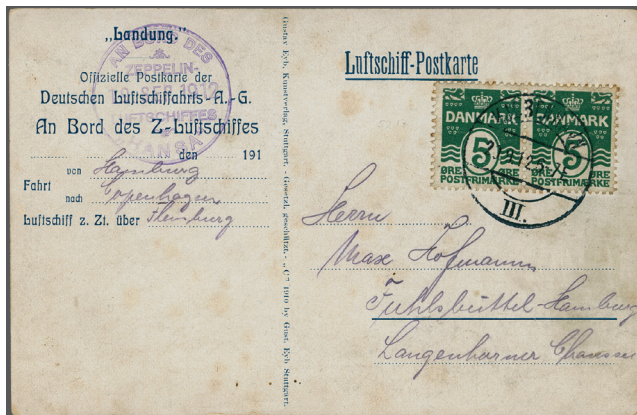 „Landung.“
AN BORD DES
ZEPPELIN-
19. SEP. 1912
LUFTSCHIFFES
HANSA
Offizielle Postkarte der
Deutschen Luftschiffahrts-A.-G.
An Bord des Z-Luftschiffes
den 191
von Hamburg
Fahrt
nach Copenhagen
Luftschiff z. Zt. über Flensburg
Gustav Eyb, Kunstverlag, Stuttgart. - Gesetzl. geschützt. - „C“ 1910 by Gust. Eyb Stuttgart.
Luftschiff-Postkarte
DANMARK DANMARK
5 5
ØRE ØRE
POSTFRIMÆRKE POSTFRIMÆRKE
III.
Herrn
Max Hofmann
Fuhlsbüttel-Hamburg
Langenhorner Chaussee